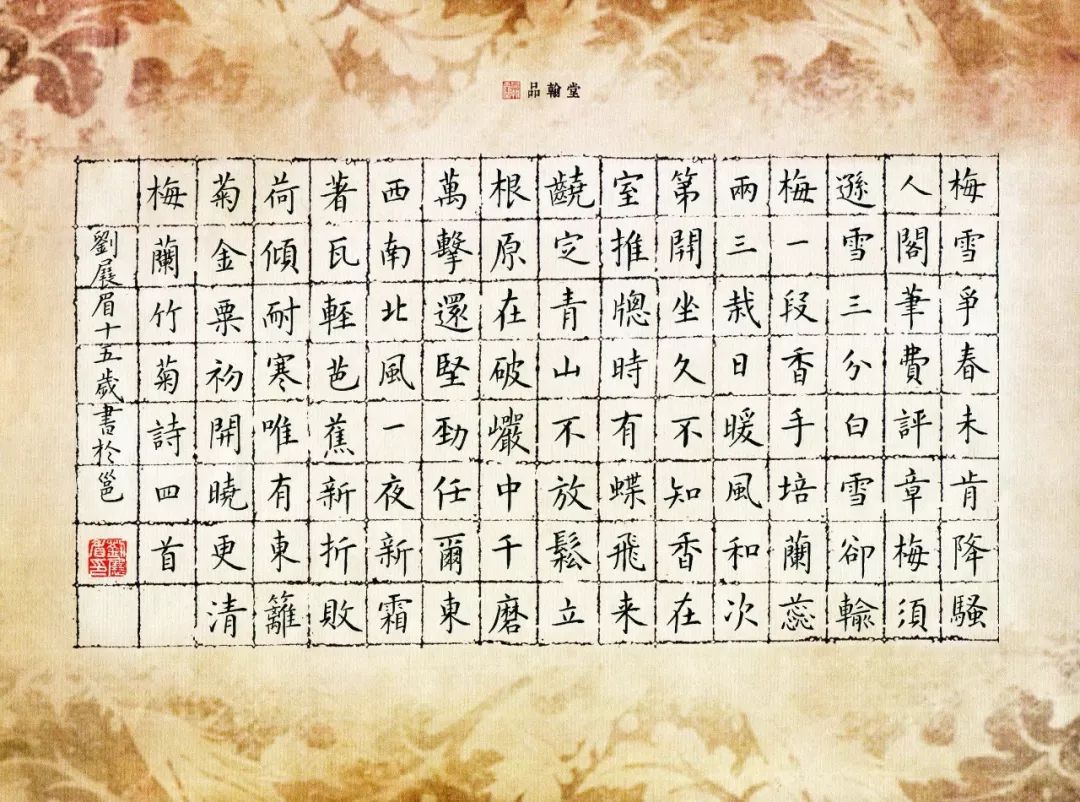 品翰堂
梅雪爭春未肯降騷
人閣筆費評章梅須
遜雪三分白雪卻輸
梅一段香手培蘭蕊
兩三栽日暖風和次
第開坐久不知香在
室推牕時有蝶飛来
定青山不放鬆立
根原在破巖中千磨
萬擊還堅勁任爾東
西南北風一夜新霜
著瓦輕芭蕉新折敗
荷傾耐寒唯有東籬
菊金粟初開曉更清
梅蘭竹菊詩四首
劉展眉十五歲書於邕
劉展眉印